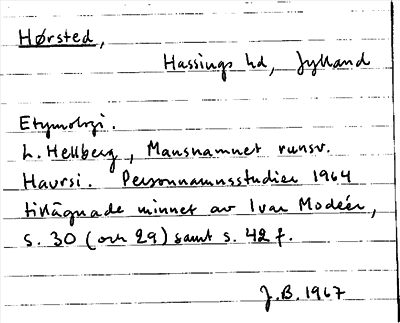 Hørsted,
Hassings hd, Jylland
Etymologi.
L. Hellberg, Mansnamnet runsv.
Haursi. Personnamnsstudier 1964
tillägnade minnet av Ivar Modéer,
s. 30 (och 29) samt s. 42 f.
J.B. 1967